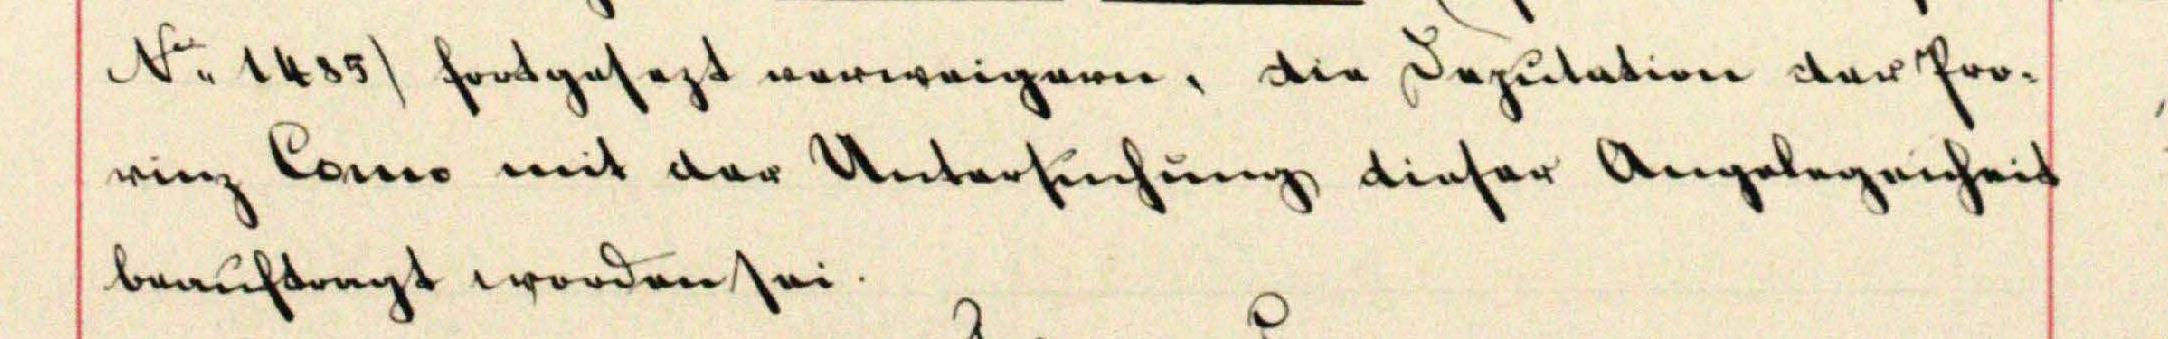 No. 1485) fortgesezt verweigern, die Deputation der Pro-
vinz Como mit der Untersuchung dieser Angelegenheit
beauftragt worden sei.